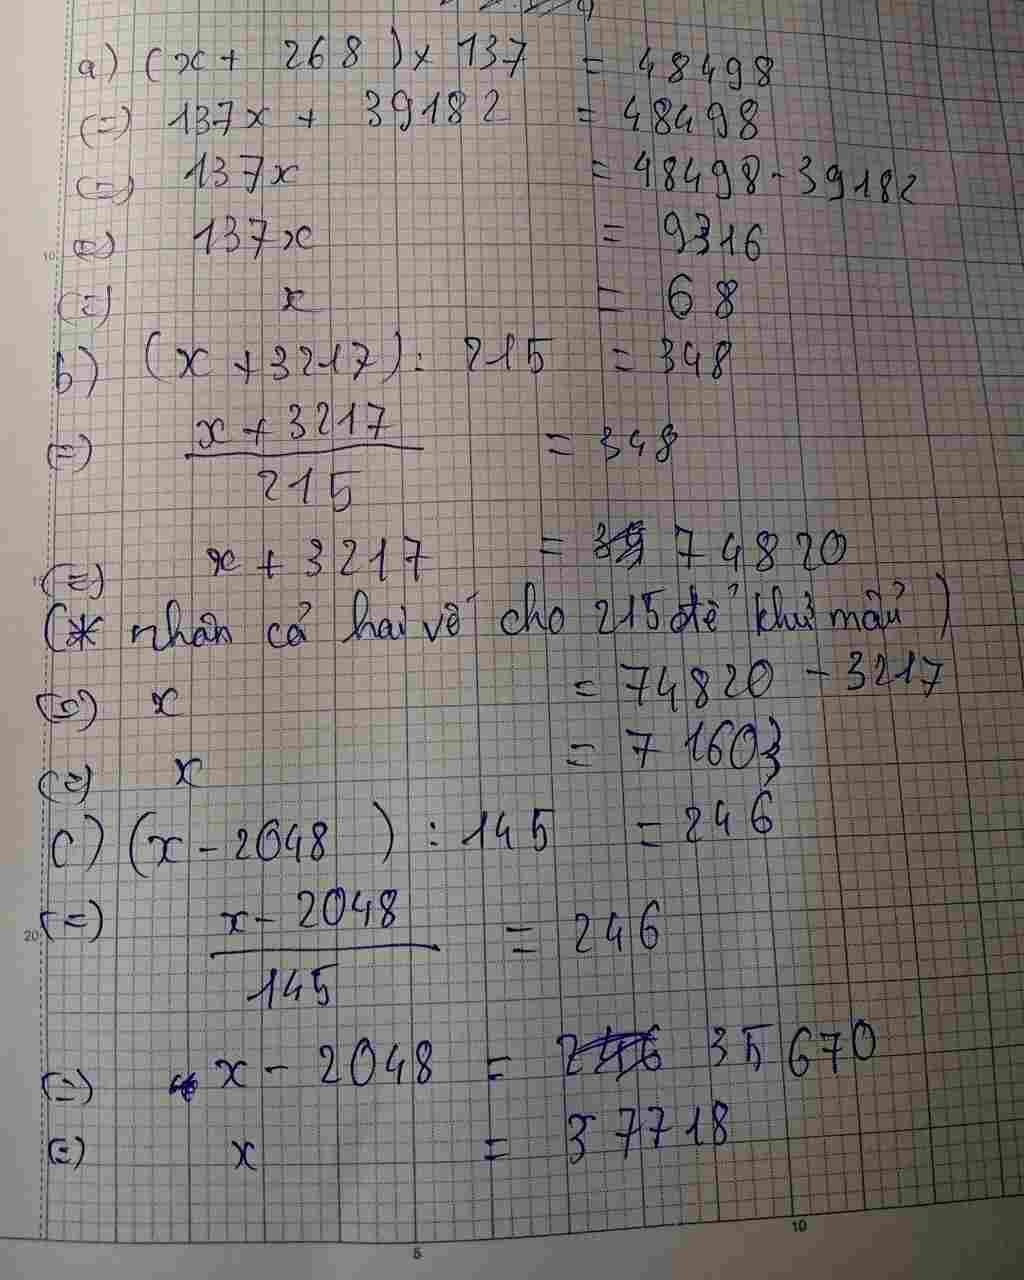 a) (x + 268) x 137 = 48498
(=) 137x + 39182 = 48498
(=) 137x = 48498 - 39182
(=) 137x = 9316
(=) x = 68
b) (x + 3217) : 215 = 348
(=) x + 3217 / 215 = 348
(=) x + 3217 = 74820
(* nhân cả hai vế cho 215 để khử mẫu)
(=) x = 74820 - 3217
(=) x = 71603
c) (x - 2048) : 145 = 246
(=) x - 2048 / 145 = 246
(=) x - 2048 = 35670
(=) x = 37718
10
20
5
10